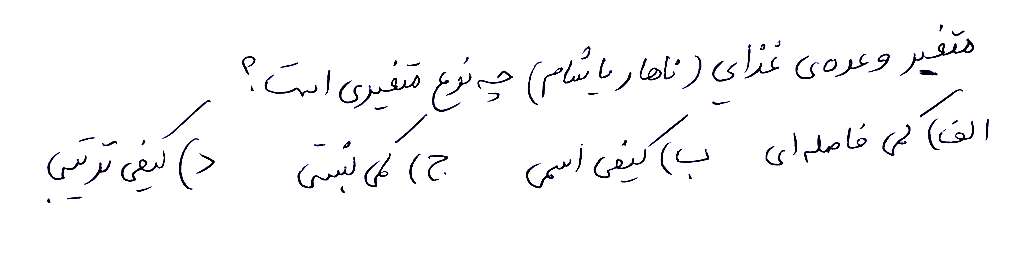 متغیر وعده‌ی غذایی (ناهار یا شام) چه نوع متغیری است؟
الف) کمی فاصله‌ای ب) کیفی اسمی ج) کمی نسبتی د) کیفی ترتیبی